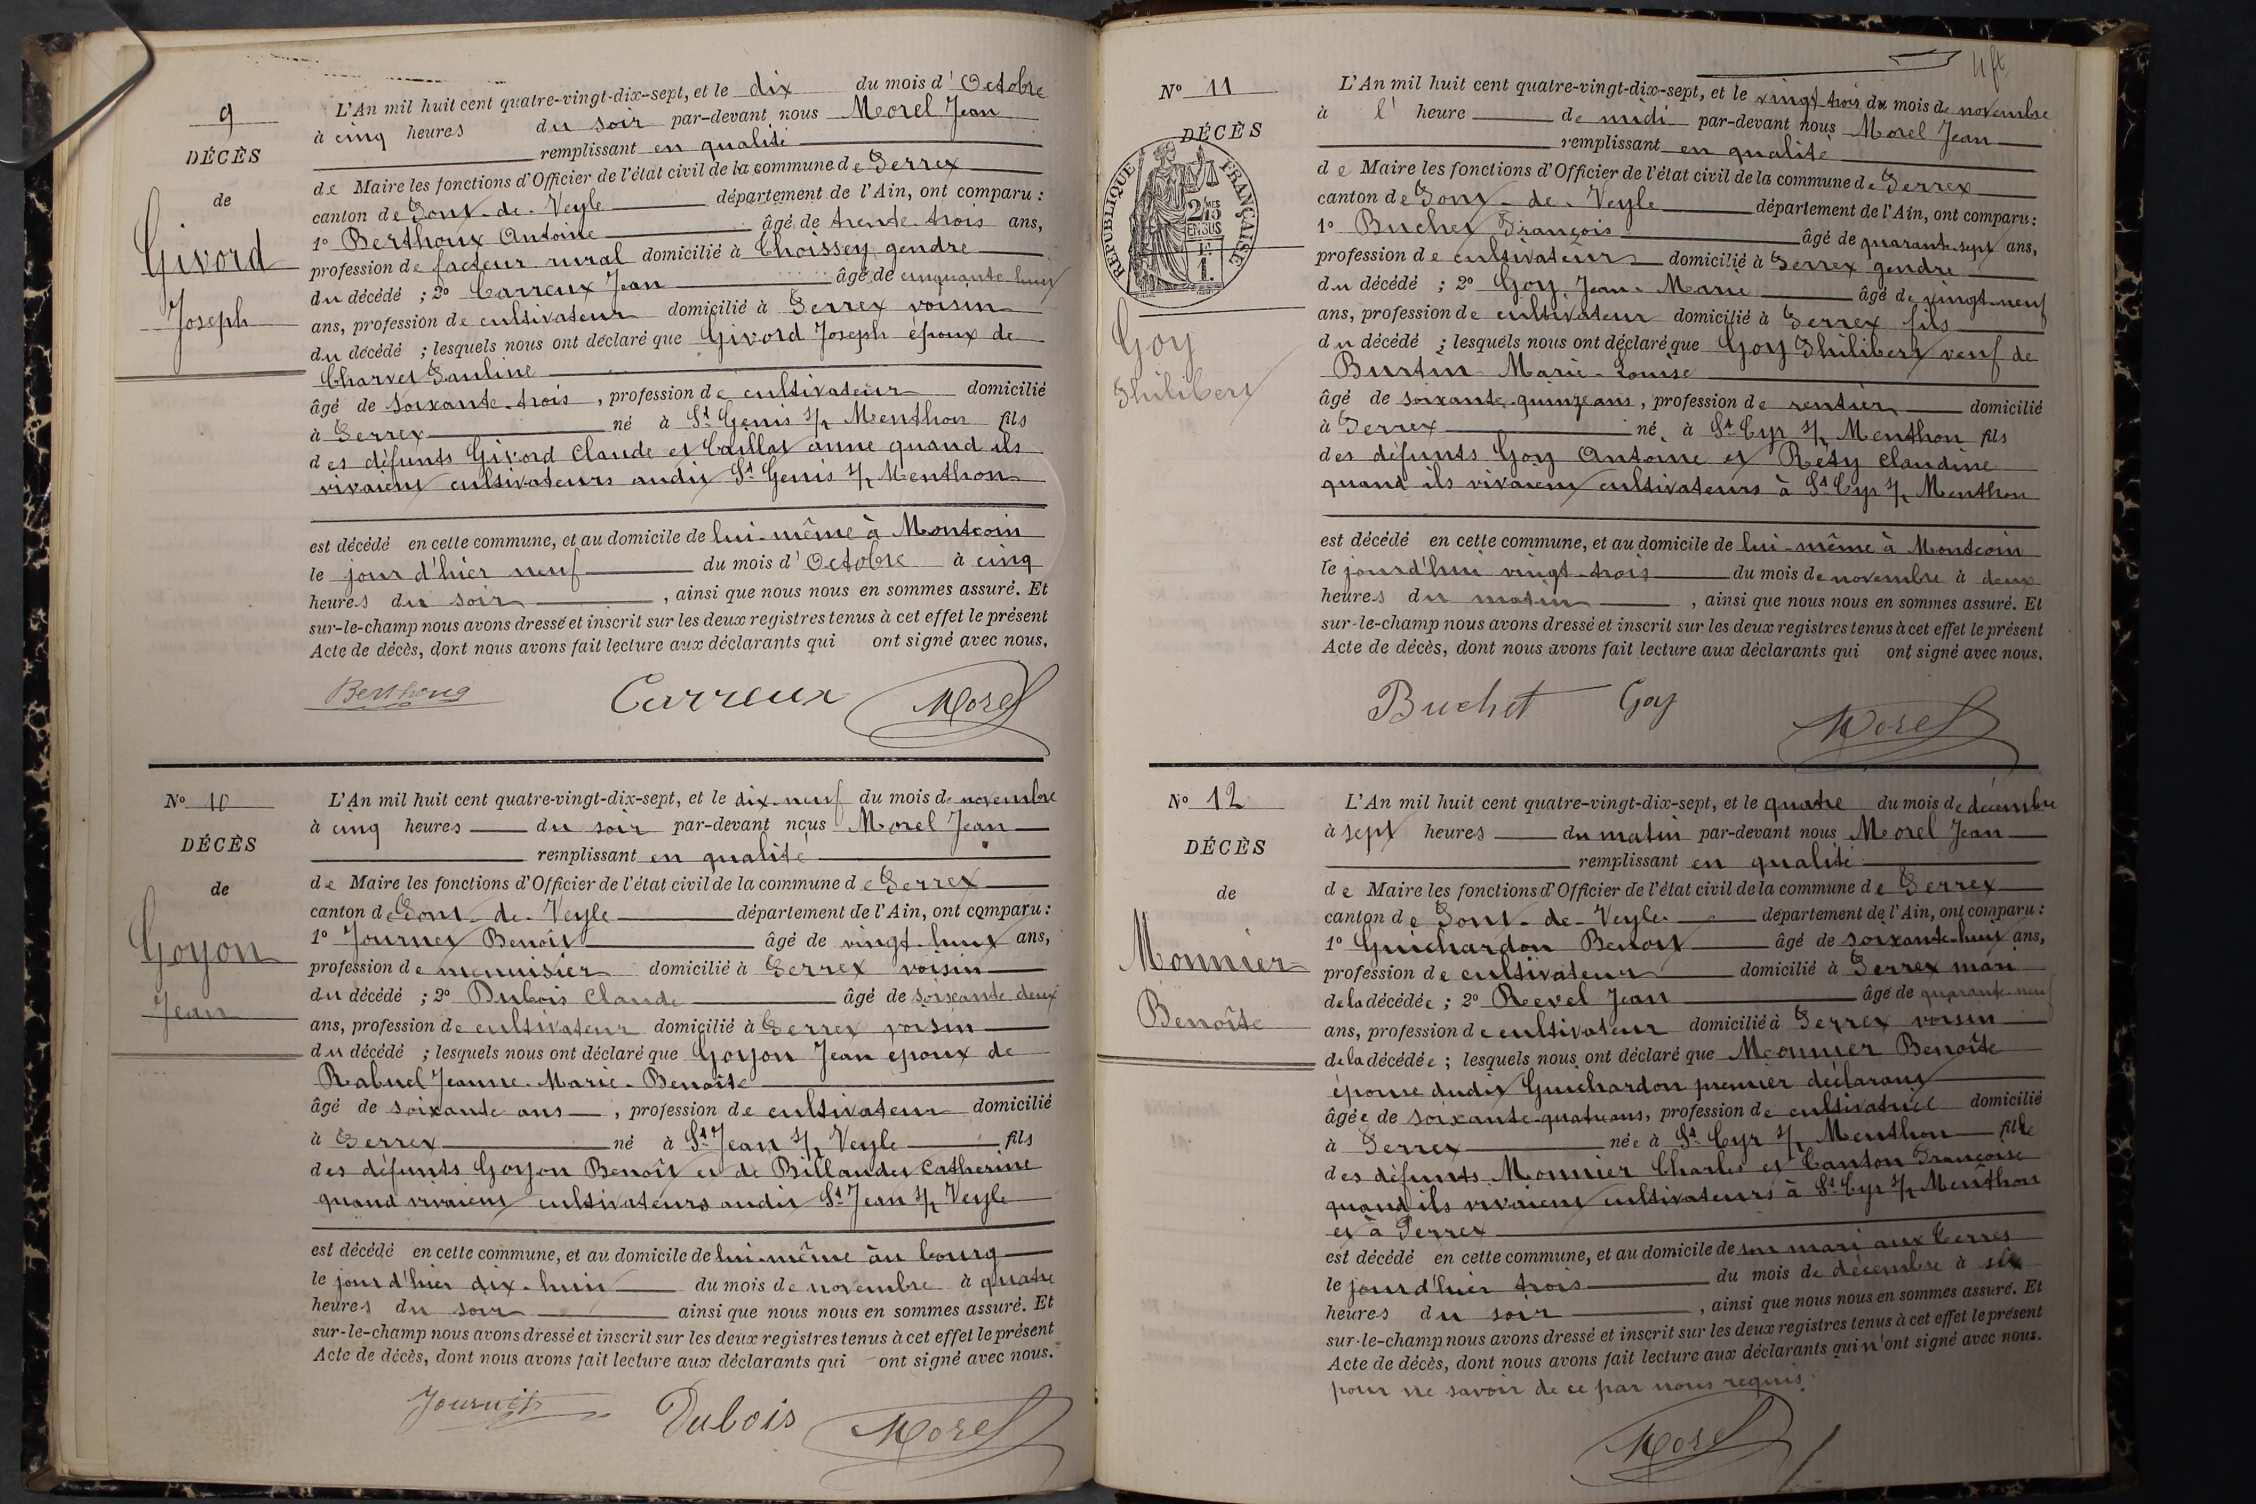 9
DÉCÈS
de
Givord
Joseph
L'An mil huit cent quatre-vingt-dix-sept, et le dix du mois d'Octobre
à cinq heures du soir par-devant nous Morel Jean
remplissant en qualité
de Maire les fonctions d'Officier de l'état civil de la commune de Perrex
canton de Pont-de-Veyle département de l'Ain, ont comparu :
1° Berthoux Antoine âgé de trente-trois ans,
profession de facteur rural domicilié à Choissey gendre
du décédé ; 2° Carreux Jean âgé de cinquante huit
ans, profession de cultivateur domicilié à Perrex voisin
du décédé ; lesquels nous ont déclaré que Givord Joseph époux de
Charvet Pauline
âgé de soixante-trois, profession de cultivateur domicilié
à Perrex né à St Genis s/r Menthon fils
des défunts Givord Claude et Caillat anne quand ils
vivaient cultivateurs audit St Genis s/r Menthon
est décédé en cette commune, et au domicile de lui-même à Montcoin
le jour d'hier neuf du mois d'Octobre à cinq
heures du soir, ainsi que nous nous en sommes assuré. Et
sur-le-champ nous avons dressé et inscrit sur les deux registres tenus à cet effet le présent
Acte de décès, dont nous avons fait lecture aux déclarants qui ont signé avec nous.
Carreux Morel
N° 10
DÉCÈS
de
Goyon
Jean
L'An mil huit cent quatre-vingt-dix-sept, et le dix-neuf du mois de novembre
à cinq heures du soir par-devant nous Morel Jean
remplissant en qualité
de Maire les fonctions d'Officier de l'état civil de la commune de Perrex
canton de Pont-de-Veyle département de l'Ain, ont comparu :
1° Journet Benoît âgé de vingt-huit ans,
profession de menuisier domicilié à Perrex voisin
du décédé ; 2° Dubois Claude âgé de soixante deux
ans, profession de cultivateur domicilié à Perrex voisin
du décédé ; lesquels nous ont déclaré que Goyon Jean époux de
Rabuel Jeanne-Marie-Benoîte
âgé de soixante ans, profession de cultivateur domicilié
à Perrex né à St Jean s/r Veyle fils
des défunts Goyon Benoît et de Billaudet Catherine
quand vivaient cultivateurs audit St Jean s/r Veyle
est décédé en cette commune, et au domicile de lui-même au bourg
le jour d'hier dix-huit du mois de novembre à quatre
heures du soir ainsi que nous nous en sommes assuré. Et
sur-le-champ nous avons dressé et inscrit sur les deux registres tenus à cet effet le présent
Acte de décès, dont nous avons fait lecture aux déclarants qui ont signé avec nous.
Journet Dubois Morel
N° 11
DÉCÈS
RÉPUBLIQUE FRANÇAISE
2/10 MES
EN SUS
1 F.
1.
Goy
Philibert
L'An mil huit cent quatre-vingt-dix-sept, et le vingt-trois du mois de novembre
à l' heure de midi par-devant nous Morel Jean
remplissant en qualité
de Maire les fonctions d'Officier de l'état civil de la commune de Perrex
canton de Pont-de-Veyle département de l'Ain, ont comparu :
1° Buchet François âgé de quarante-sept ans,
profession de cultivateur domicilié à Perrex gendre
du décédé ; 2° Goy Jean-Marie âgé de vingt-neuf
ans, profession de cultivateur domicilié à Perrex fils
du décédé ; lesquels nous ont déclaré que Goy Philibert veuf de
Burtin Marie-Louise
âgé de soixante-quinze ans, profession de rentier domicilié
à Perrex né à St Cyr s/r Menthon fils
des défunts Goy Antoine et Réty Claudine
quand ils vivaient cultivateurs à St Cyr s/r Menthon
est décédé en cette commune, et au domicile de lui-même à Montcoin
le jourd'hui vingt-trois du mois de novembre à deux
heures du matin, ainsi que nous nous en sommes assuré. Et
sur-le-champ nous avons dressé et inscrit sur les deux registres tenus à cet effet le présent
Acte de décès, dont nous avons fait lecture aux déclarants qui ont signé avec nous.
Buchet Goy Morel
N° 12
DÉCÈS
de
Monnier
Benoîte
L'An mil huit cent quatre-vingt-dix-sept, et le quatre du mois de décembre
à sept heures du matin par-devant nous Morel Jean
remplissant en qualité
de Maire les fonctions d'Officier de l'état civil de la commune de Perrex
canton de Pont-de-Veyle département de l'Ain, ont comparu :
1° Guichardon Benoit âgé de soixante-huit ans,
profession de cultivateur domicilié à Perrex mari
de la décédée ; 2° Revel Jean âgé de quarante-neuf
ans, profession de cultivateur domicilié à Perrex voisin
de la décédée ; lesquels nous ont déclaré que Monnier Benoîte
épouse dudit Guichardon premier déclarant
âgée de soixante-quatre ans, profession de cultivatrice domicilié
à Perrex née à St Cyr s/r Menthon fille
des défunts Monnier Charles et Canton Françoise
quand ils vivaient cultivateurs à St Cyr s/r Menthon
et à Perrex
est décédé en cette commune, et au domicile de son mari aux Cerres
le jour d'hier trois du mois de décembre à six
heures du soir, ainsi que nous nous en sommes assuré. Et
sur-le-champ nous avons dressé et inscrit sur les deux registres tenus à cet effet le présent
Acte de décès, dont nous avons fait lecture aux déclarants qui n'ont signé avec nous.
pour ne savoir de ce par nous requis.
Morel